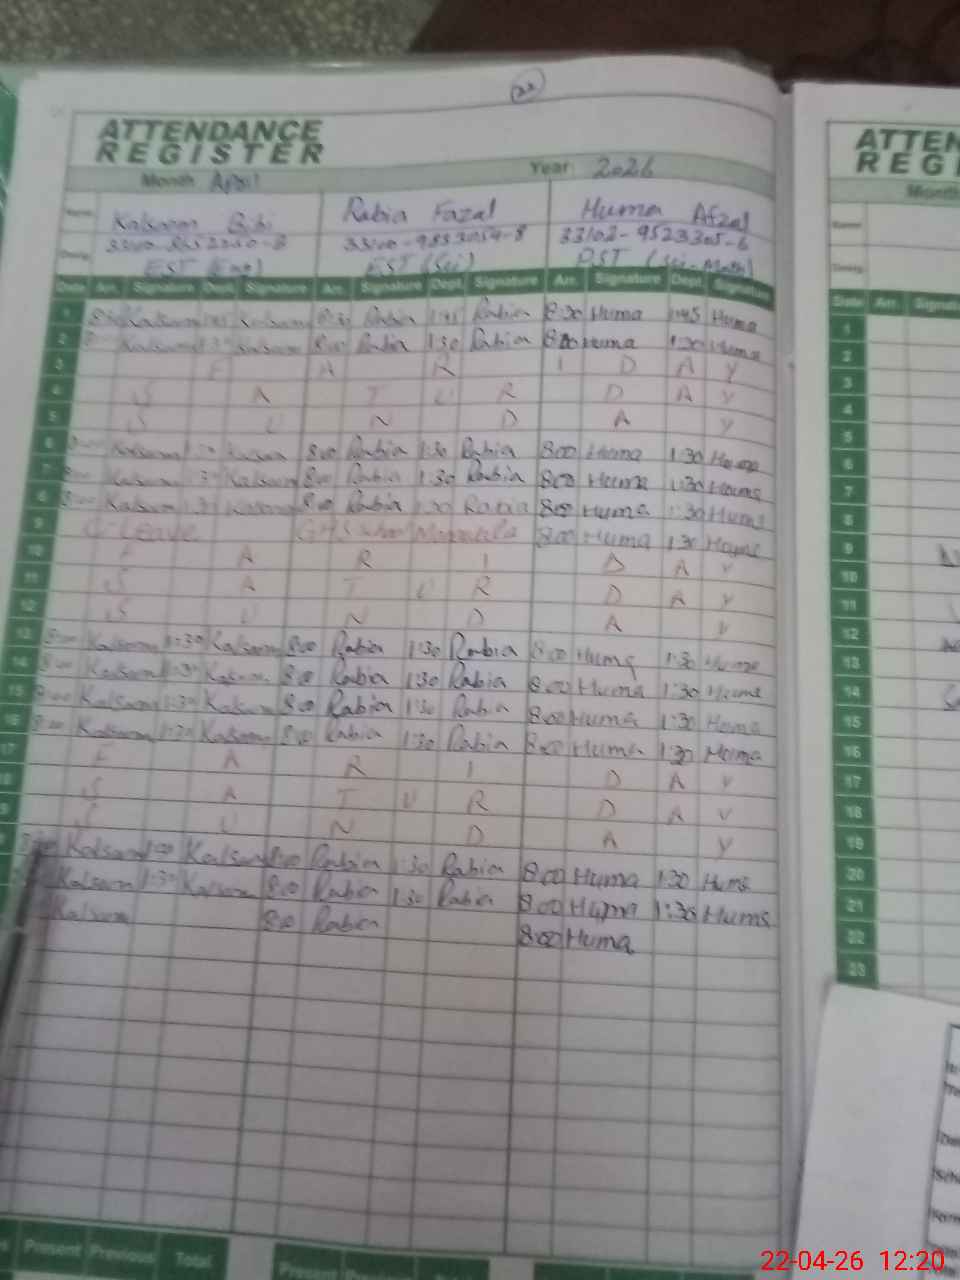 22
ATTENDANCE
REGISTER
Month April Year 2026
Name Kalsoom Bibi Rabia Fazal Huma Afzal
33102-9523305-6
Desig EST (Eng) EST (Sci) PST (Sci-Math)
Date Arr. Signature Dept. Signature Arr. Signature Dept. Signature Arr. Signature Dept. Signature
1 8:30 Kalsoom 1:45 Kalsoom 8:30 Rabia 1:45 Rabia 8:30 Huma 1:45 Huma
2 8:00 Kalsoom 1:30 Kalsoom 8:00 Rabia 1:30 Rabia 8:00 Huma 1:30 Huma
3 F A R I D A Y
4 S A T U R D A Y
5 S U N D A Y
6 8:00 Kalsoom 1:30 Kalsoom 8:00 Rabia 1:30 Rabia 8:00 Huma 1:30 Huma
7 8:00 Kalsoom 1:30 Kalsoom 8:00 Rabia 1:30 Rabia 8:00 Huma 1:30 Huma
8 8:00 Kalsoom 1:30 Kalsoom 8:00 Rabia 1:30 Rabia 8:00 Huma 1:30 Huma
9 C-Leave 8:00 Huma 1:30 Huma
10 F A R I D A Y
11 S A T U R D A Y
12 S U N D A Y
13 8:00 Kalsoom 1:30 Kalsoom 8:00 Rabia 1:30 Rabia 8:00 Huma 1:30 Huma
14 8:00 Kalsoom 1:30 Kalsoom 8:00 Rabia 1:30 Rabia 8:00 Huma 1:30 Huma
15 8:00 Kalsoom 1:30 Kalsoom 8:00 Rabia 1:30 Rabia 8:00 Huma 1:30 Huma
16 8:00 Kalsoom 1:30 Kalsoom 8:00 Rabia 1:30 Rabia 8:00 Huma 1:30 Huma
17 F A R I D A Y
S A T U R D A Y
S U N D A Y
Kalsoom Kalsoom 8:00 Rabia 1:30 Rabia 8:00 Huma 1:30 Huma
Kalsoom 1:30 Kalsoom 8:00 Rabia 1:30 Rabia 8:00 Huma 1:30 Huma
Kalsoom 8:00 Rabia 8:00 Huma
Present Previous Total
Present
ATTEN
REG
Month
Name
Desig
Date Arr. Signat
1
2
3
4
5
6
7
8
9
10
11
12
13
14
15
16
17
18
19
20
21
22
23
22-04-26 12:20